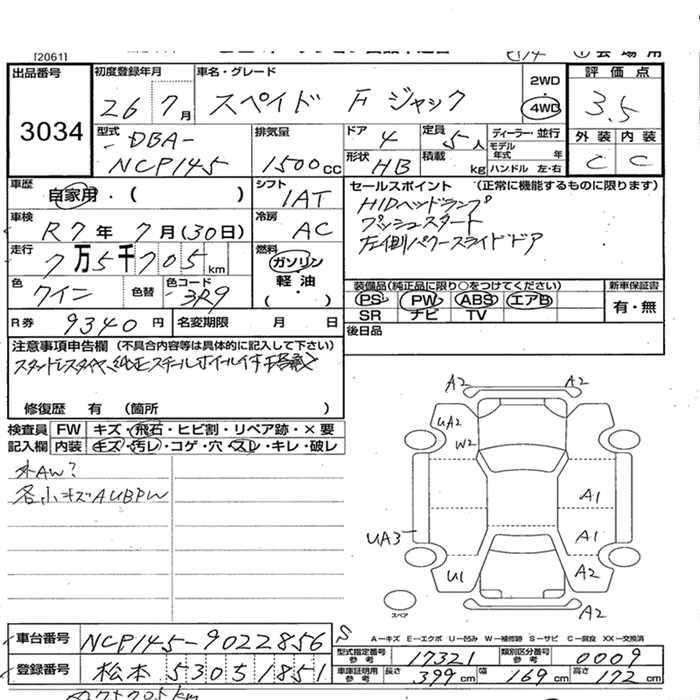 [2061]
出品番号 初度登録年月 車名・グレード 2WD 評価点
3034 26 7月 スペイド F ジャック 4WD 3.5
型式 排気量 ドア 4 定員 5人 ディーラー・並行 外装 内装
DBA- モデル年式 年
NCP145 1500cc 形状 HB 積載 kg ハンドル 左・右 C C
車歴 自家用・( ) シフト 1AT セールスポイント (正常に機能するものに限ります)
車検 R7年 7月(30日) 冷房 AC HIDヘッドランプ
走行 7万5千705km 燃料 ガソリン プッシュスタート
軽油 左側パワースライドドア
色 ワイン 色替 色コード 3R9 ・( )
装備品(純正品に限り○をつけてください) 新車保証書
PS PW ABS エアB 有・無
SR ナビ TV
R券 9340円 名変期限 月 日 後日品
注意事項申告欄 (不具合内容等は具体的に記入して下さい)
スタッドレスタイヤ、純正スチールホイール付
修復歴 有 (箇所 )
検査員 FW キズ・飛石・ヒビ割・リペア跡・×要
記入欄 内装 キズ・汚レ・コゲ・穴・スレ・キレ・破レ
AW?
各小キズAUBPW
A2 A2
UA2
W2
A1
UA3 A1
U1 A2
A2
スペア
A-キズ E-エクボ U-凹み W-補修跡 S-サビ C-腐食 XX-交換済
車台番号 NCP145-9022856
登録番号 松本 530 1851
型式指定番号 参考 17321 類別区分番号 参考 0009
車庫証明用 参考 長さ 399cm 幅 169cm 高さ 172cm